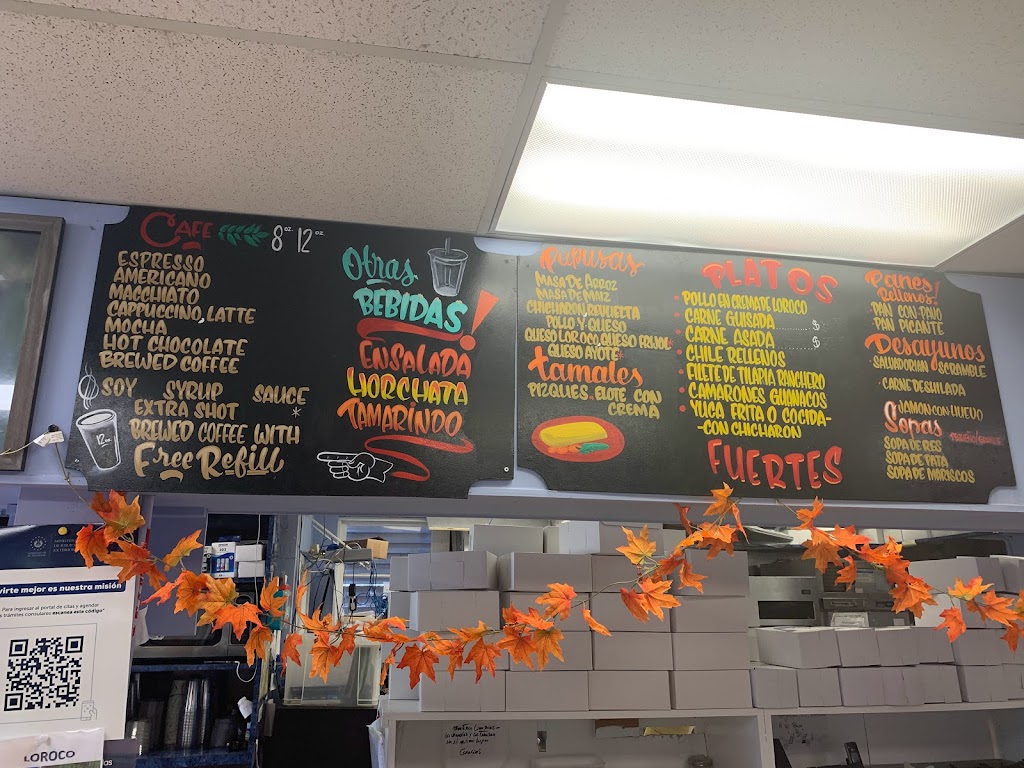 CAFE 8 OZ. 12 OZ.
ESPRESSO
AMERICANO
MACCHIATO
CAPPUCCINO, LATTE
MOCHA
HOT CHOCOLATE
BREWED COFFEE
SOY SYRUP SAUCE
EXTRA SHOT *
BREWED COFFEE WITH
Free Refill
12 oz.
Otras
BEBIDAS!
ENSALADA
HORCHATA
TAMARINDO
Pupusas
MASA DE ARROZ
MASA DE MAIZ
CHICHARON, REVUELTA
POLLO Y QUESO
QUESO LOROCO, QUESO FRIJOL
QUESO AYOTE
tamales
PIZQUES, ELOTE CON
CREMA
PLATOS
• POLLO EN CREMA DE LOROCO
• CARNE GUISADA $
• CARNE ASADA $
• CHILE RELLENOS
• FILETE DE TILAPIA RANCHERO
• CAMARONES GUANACOS
• YUCA FRITA O COCIDA-
-CON CHICHARON
FUERTES
Panes
Rellenos!
PAN CON PAVO
PAN PICANTE
Desayunos
SALVADORIAN SCRAMBLE
• CARNE DESHILADA
JAMON CON HUEVO
Sopas
SOPA DE RES
SOPA DE PATA
SOPA DE MARISCOS
virte mejor es nuestra misión
Para ingresar al portal de citas y agendar
trámites consulares escanea este código"
LOROCO